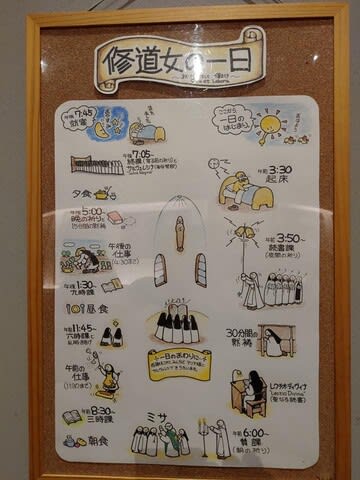 修道女の一日
ここから、
一日の
はじまり。
午前3:30
起床
午前3:50~
読書課
(夜間の祈り)
30分間の
黙想
レクチオ・ディヴィナ
"Lectio Divina"
(聖なる読書)
午前6:00~
賛課
(朝の祈り)
ミサ
朝食
午前8:30~
三時課
午前の
仕事
午前11:45~
六時課と
昼食
午後1:30~
九時課
午後の
仕事
午後5:00~
晩の祈りと
15分間の黙想
夕食
午後7:05~
終課(寝る前の祈り)と
午後7:45
就寝
一日のおわりに…